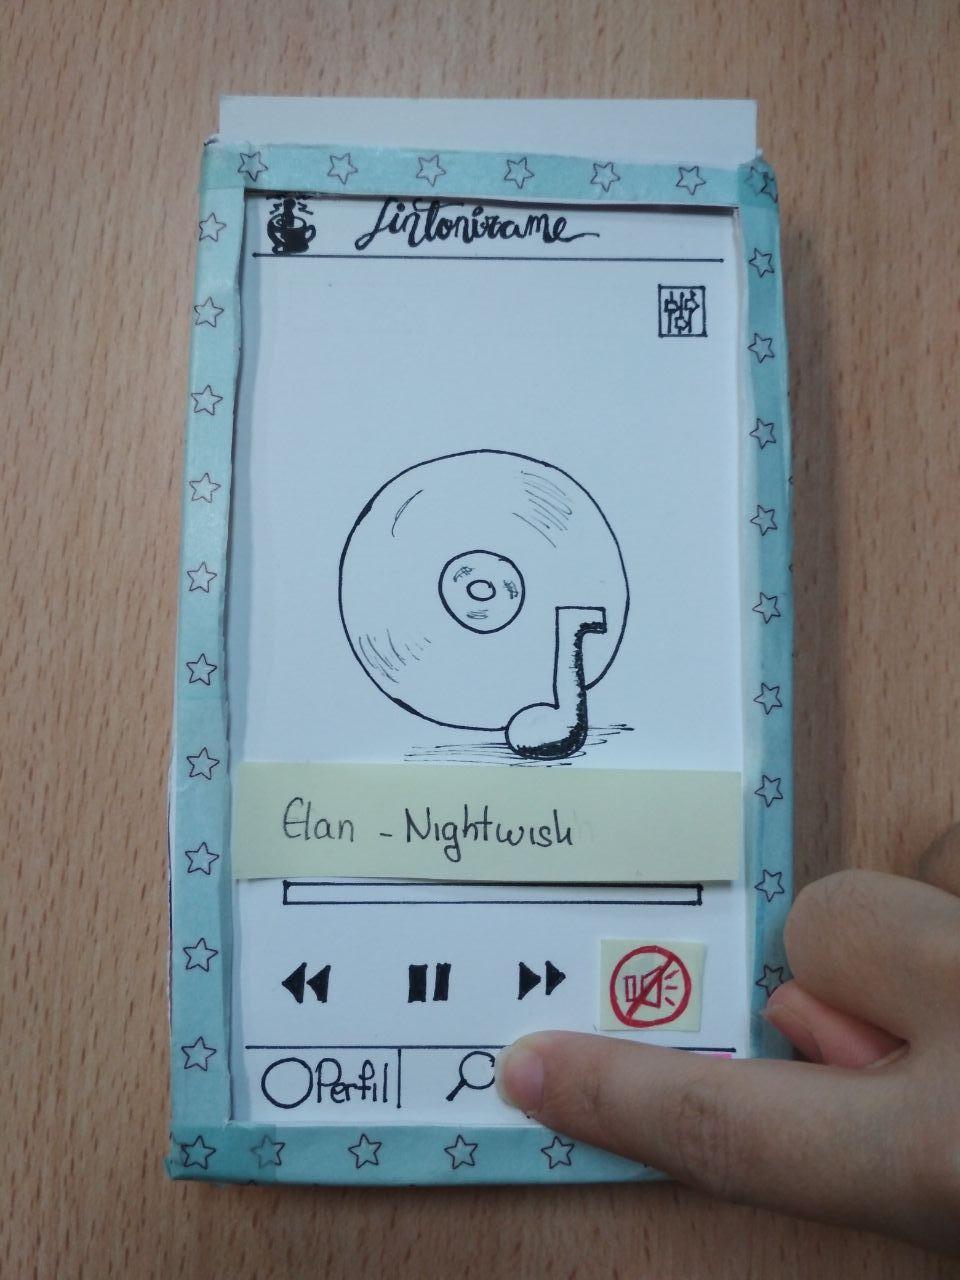 Sintonizame
Elan - Nightwish
Perfil